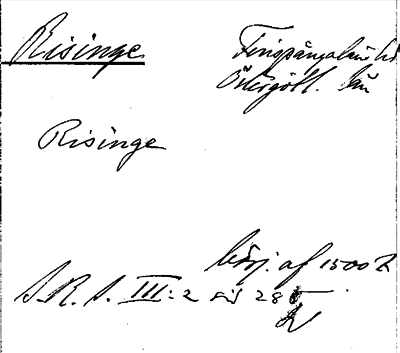 Risinge
Finspångaläns hd
Östergötl. län
Risinge
börj. af 1500 t
S.R.S. III:2 sid 285